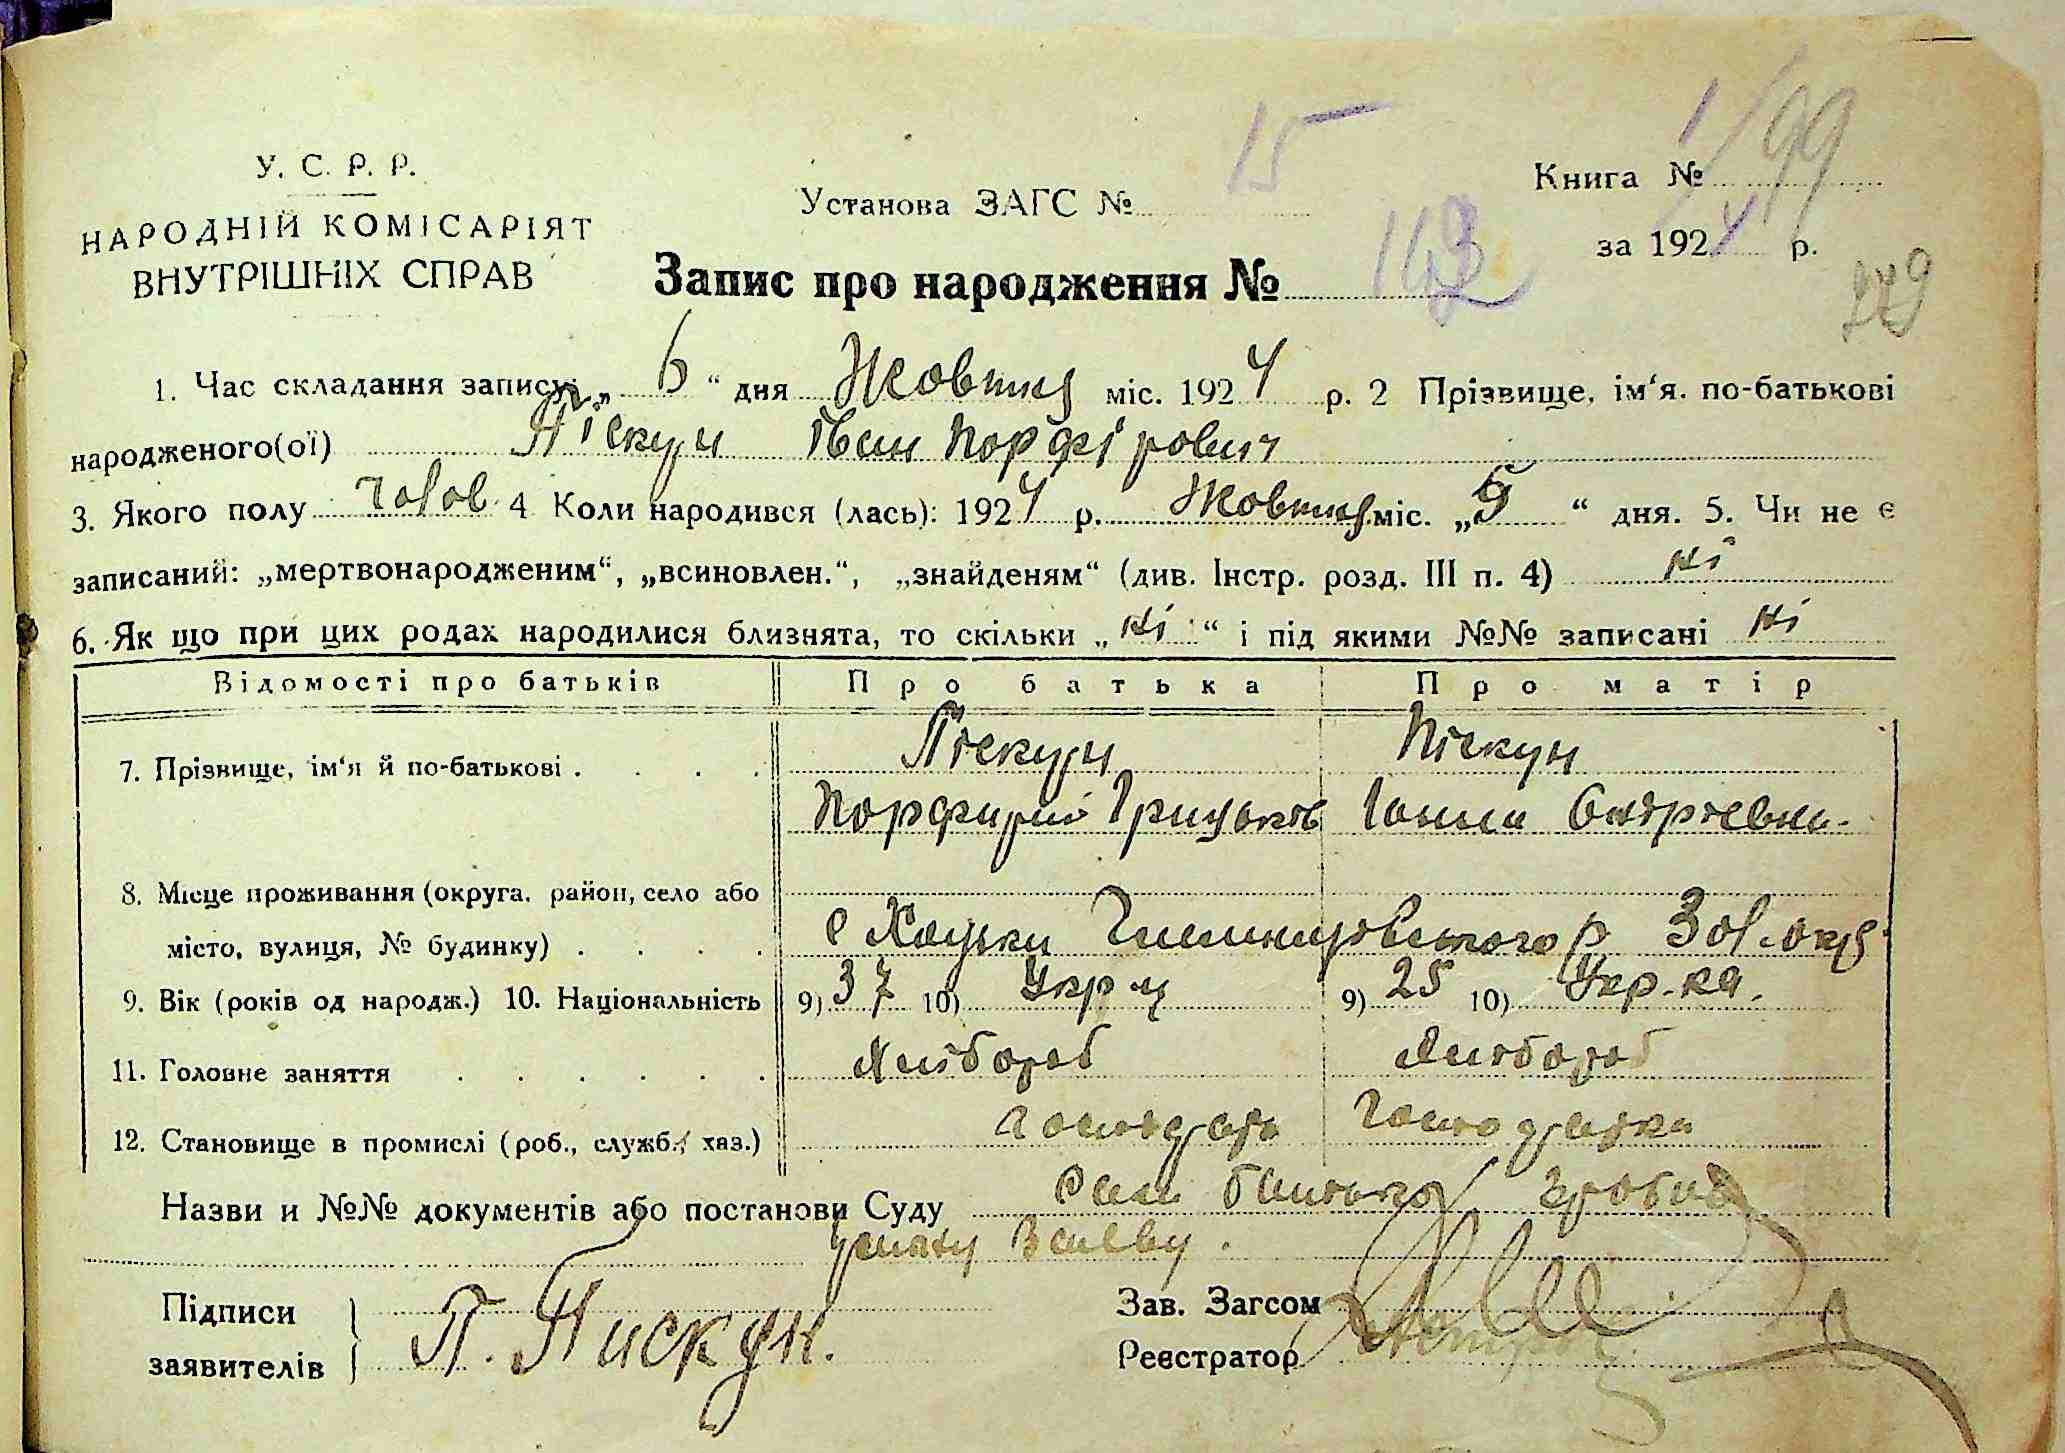 У. С. Р. Р.
НАРОДНІЙ КОМІСАРІЯТ
ВНУТРІШНІХ СПРАВ
Установа ЗАГС № 15
Книга № 1/99
за 1924 р.
Запис про народження №
1. Час складання запису: „ 6 “ дня Жовтня міс. 1924 р. 2 Прізвище, ім‘я. по-батькові
народженого(ої) Піскун Іван Порфірович
3. Якого полу чолов. 4 Коли народився (лась): 1924 р. Жовтня міс. „ 5 “ дня. 5. Чи не є
записаний: „мертвонародженим“, „всиновлен.“, „знайденям“ (див. Інстр. розд. III п. 4) ні
6. Як що при цих родах народилися близнята, то скільки „ ні “ і під якими №№ записані ні
Відомості про батьків Про батька Про матір
7. Прізвище, ім‘я й по-батькові . . . . Піскун Піскун
Порфирий Грицьков Ганна Андріевна
8. Місце проживання (округа, район, село або
місто, вулиця, № будинку) . . . . с Хацьки р Зол. окр
9. Вік (років од народж.) 10. Національність 9) 37 10) Укр-ц 9) 25 10) Укр-ка.
11. Головне заняття . . . . . . Хлібороб Хлібороб
12. Становище в промислі (роб., служб., хаз.) Господарь Господарка
Назви и №№ документів або постанови Суду Сам батько зробив
усну заяву.
Підписи
заявителів П. Пискун.
Зав. Загсом
Реєстратор